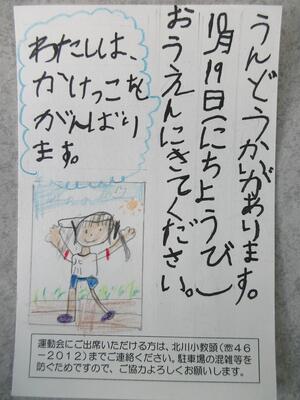 うんどうかいがあります。
10月19日(にちようび)
おうえんにきてください。
わたしは、
かけっこを
がんばり
ます。
運動会にご出席いただける方は、北川小教頭(☎46
－2012)までご連絡ください。駐車場の混雑等を
防ぐためですので、ご協力よろしくお願いします。